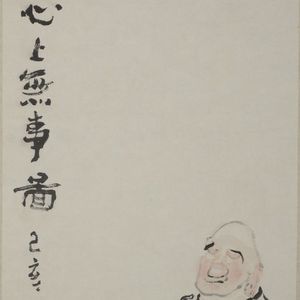 心上無事啚
己亥